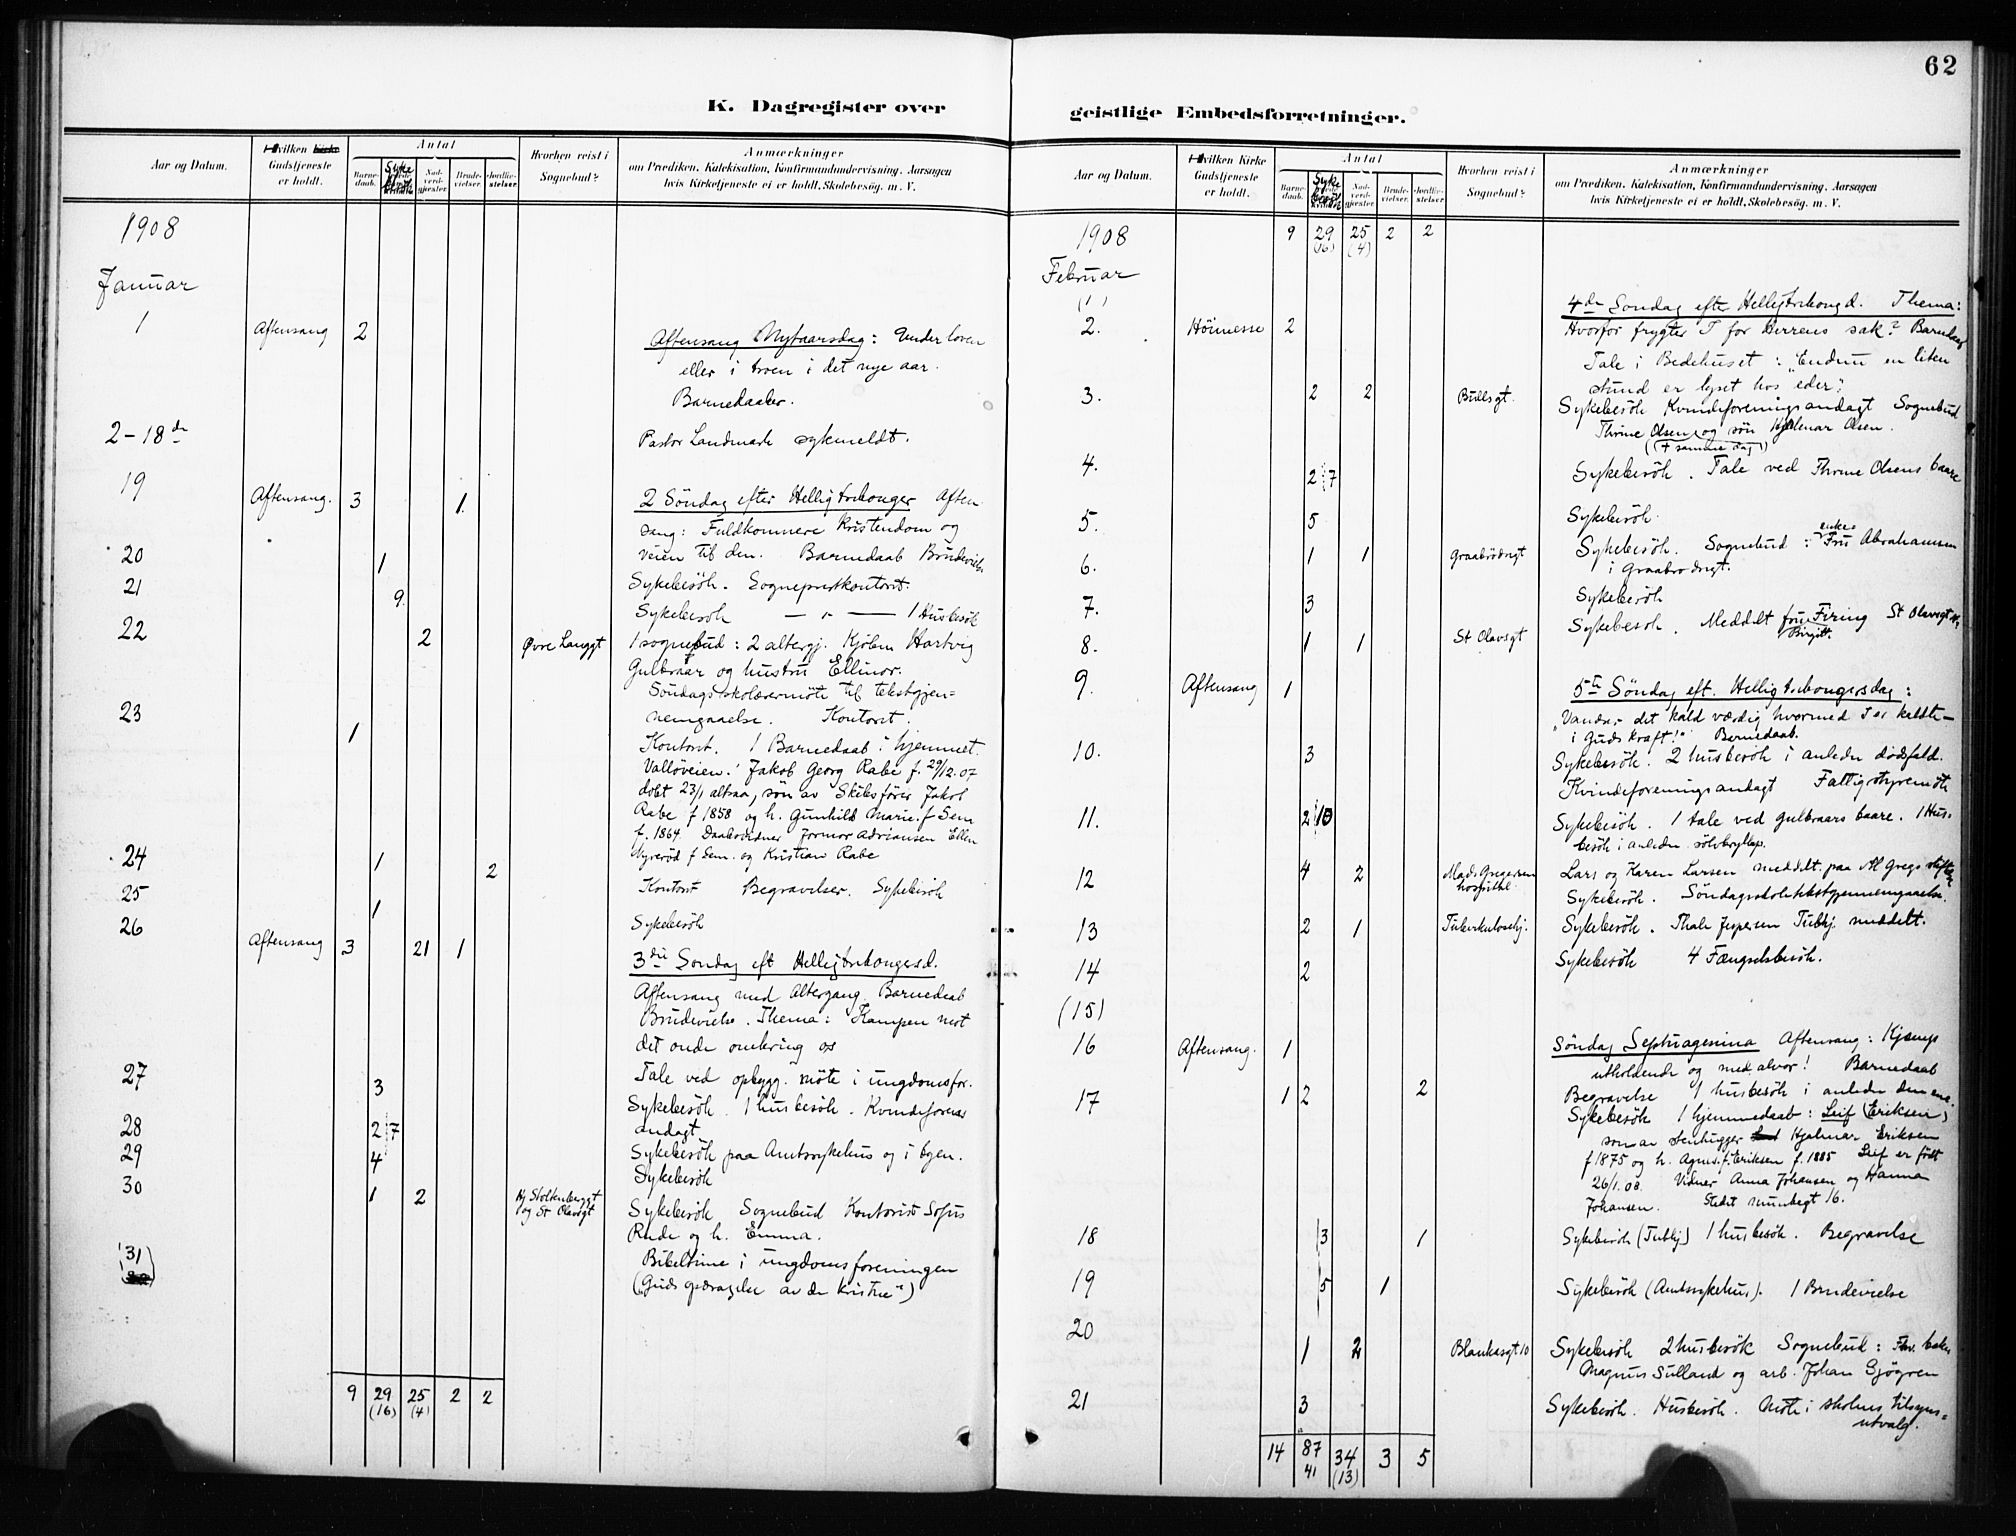 62
K. Dagregister over
geistlige Embedsforretninger.
Aar og Datum.
Hvilken Kirke Gudstjeneste er holdt.
Antal
Barne-daab.
Syke besök
Nad-verd-gjester.
Brude-vielser.
Jordfæ-stelser
Hvorhen reist i Sognebud?
Anmærkninger
om Prædiken, Katekisation, Konfirmandundervisning, Aarsagen
hvis Kirketjeneste ei er holdt, Skolebesøg. m. V.
1908
Januar
1 Aftensang 2 Aftensang Nytaarsdag: Under loven
eller i troen i det nye aar.
Barnedaaber.
2-18de Pastor Landmark sykmeldt.
19 Aftensang. 3 1 2 Söndag efter Helligtrekonger Aften
sang: Fuldkomnere kristendom og
veien til den. Barnedaab Brudevielse
20 1 Sykebesök. Sogneprestkontoret.
21 9 Sykebesök — " — 1 Husbesök
22 2 Øvre Langgt 1 sognebud: 2 altergj. Kjölem Hartvig
Gulbraar og hustru Ellinor.
Söndagsskolærermöte til tekstgjen=
nemgaaelse. Kontoret.
23 1 Kontoret. 1 Barnedaab i hjemmet.
Vallöveien: Jakob Georg Rabe f. 29/12.07
döbt 23/1 altsaa, sön av Skibsförer Jakob
Rabe f 1858 og h. Gunhild Marie f Sem
f. 1864. Daabsvidner Jormor Adriansen Ellen
Nyeröd f Sem. og Kristian Rabe
24 1 2 Kontoret Begravelser. Sykebesök
25 1 Sykebesök
26 Aftensang 3 21 1 3die Söndag eft Helligtrekongersd.
Aftensang med Altergang. Barnedaab
Brudevielse. Thema: Kampen mot
det onde omkring os
27 3 Tale ved opbygg. möte i ungdomsfor.
Sykebesök. 1 husbesök. Kvindeforenings
andagt
28 2 7 Sykebesök paa Amtssykehus og i byen.
29 4 Sykebesök
30 1 2 Hj Stoltenberggt og St Olavsgt Sykebesök Sognebud Kontorist Sofus
Rude og h. Emma.
(31) Bibeltime i ungdomsforeningen
9 29 25 2 2
(16) (4)
Aar og Datum.
Hvilken Kirke Gudstjeneste er holdt.
Antal
Barne-daab.
Syke besök
Nad-verd-gjester.
Brude-vielser.
Jordfæ-stelser
Hvorhen reist i Sognebud?
Anmærkninger
om Prædiken, Katekisation, Konfirmandundervisning, Aarsagen
hvis Kirketjeneste ei er holdt, Skolebesøg. m. V.
1908 9 29 25 2 2
(16) (4)
Februar
(1) 4de Söndag efter Helligtrekongd. Thema:
2. Höimesse 2 Hvorfor frygter I for Herrens sak? Barnedaab
Tale i Bedehuset: "Endnu en liten
stund er lyset hos eder".
3. 2 2 Bullsgt. Sykebesök Kvindeforeningsandagt Sognebud
Thrine Olsen og sön Hjalmar Olsen.
(+ samme dag)
4. 2 7 Sykebesök. Tale ved Thrine Olsens baare
5. 5 Sykebesök.
6. 1 1 Graabrödregt Sykebesök. Sognebud: enke Fru Abrahamsen
i Graabrödregt.
7. 3 Sykebesök
8. 1 1 St Olavsgt Sykebesök. Meddelt fru Birgitt. Firing St Olavsgt
9. Aftensang 1 5te Söndag eft. Helligtrekongersdag:
"Vandre det kald værdig hvormed I er kaldte -
i Guds kraft!" Barnedaab.
10. 3 Sykebesök. 2 husbesök i anledn dödsfald.
Kvindeforeningsandagt Fattigstyremöte
11. 2 10 Sykebesök. 1 tale ved Gulbraars baare. 1 Hus-
besök i anledn. sölvbryllup.
12 4 2 Mads Gregersen hospital. Lars og Karen Larsen meddelt. paa M Gregs stiftelse
Sykebesök. Söndagsskoletekstgjennemgaaelse.
13 2 1 Tuberkulosehj. Sykebesök. Thale Jespersen Tubhj. meddelt.
14 2 Sykebesök 4 Fængselsbesök.
(15)
16 Aftensang. 1 Söndag Septuagesima Aftensang: Kjæmp
utholdende og med alvor! Barnedaab
17 1 2 2 Begravelse 1 husbesök i anledn denne.
Sykebesök 1 hjemmedaab: Leif (Eriksen)
sön av stenhugger Hjalmar Eriksen
f 1875 og h. Agnes f. Eriksen f. 1885 Leif er födt
26/1.08. Vidner Anna Johansen og Hanna
Johansen. Stedet Munkegt 16.
18 3 1 Sykebesök (Tubhj) 1 husbesök. Begravelse
19 5 1 Sykebesök (Amtssykehus). 1 Brudevielse
20 1 2 Blankasgt 10 Sykebesök 2 husbesök Sognebud: Fhv. baker
Magnus Sulland og arb. Johan Sjögren
21 3 Sykebesök. Husbesök. Möte i skolens tilsyns=
utvalg.
14 87 34 3 5
41 (13)